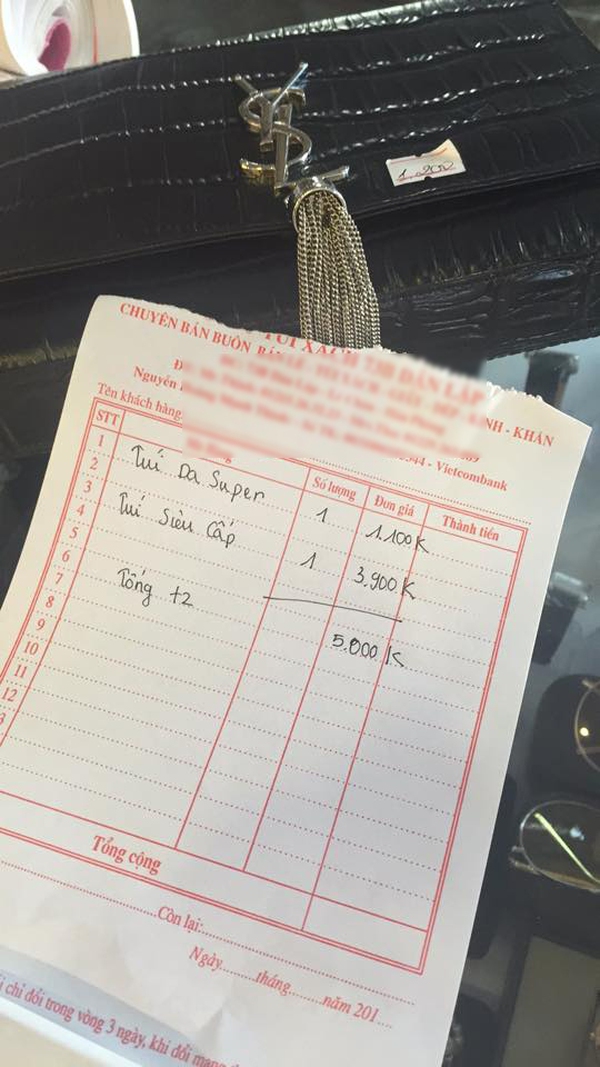 YSL
1.200
TÚI XÁCH
CHUYÊN BÁN BUÔN
ÍNH - KHĂN
Nguyễn
344 - Vietcombank
Tên khách hàng:
STT
Số lượng
Đơn giá
Thành tiền
1
2
Túi Da Super
1
1.100K
3
4
Túi Siêu Cấp
1
3.900K
5
6
7
Tổng t2
5.000K
8
9
10
11
12
3
Tổng cộng
Còn lại:
Ngày........tháng........năm 201....
i chỉ đổi trong vòng 3 ngày, khi đổi mang